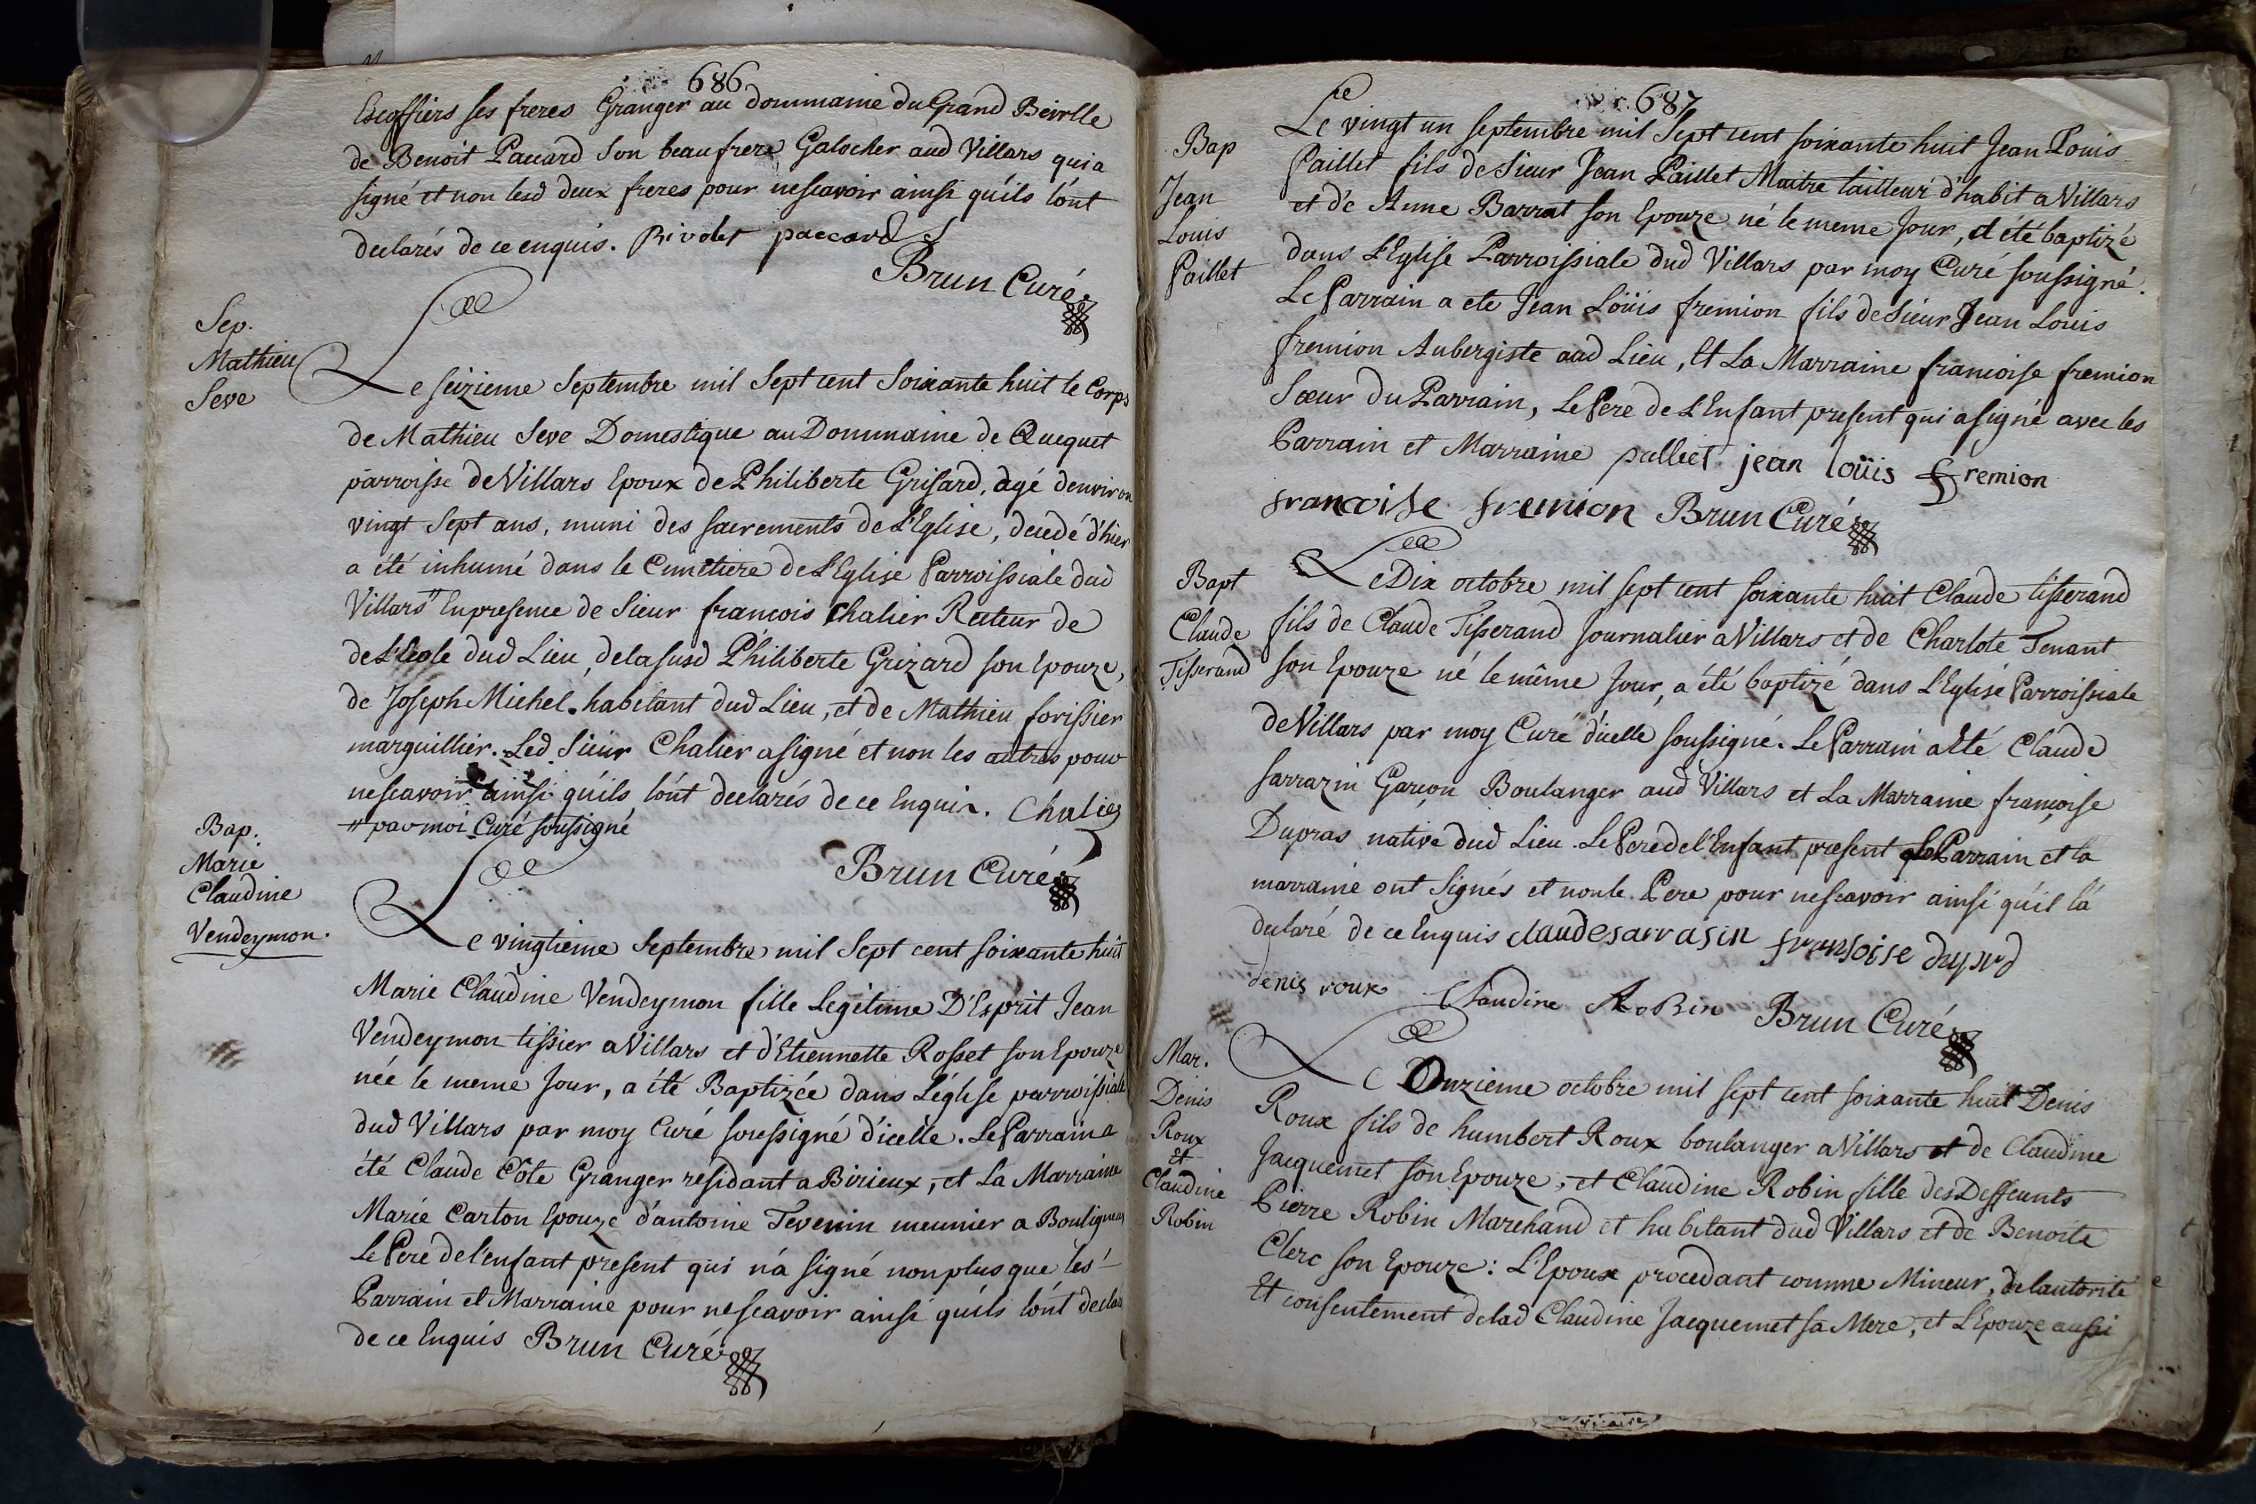 686
Escoffiers ses freres Granger au dommaine du Grand
de Benoit Paccard son beaufrere Galocher aud Villars qui a
signé et non lesd deux freres pour nescavoir ainsi quils lónt
declarés de ce enquis. Rivolet paccard
Brun Curé
Sep.
Mathieu
Seve
Le seizieme Septembre mil Sept cent Soixante huit le Corps
de Mathieu Seve Domestique au Dommaine de Quequet
parroisse de Villars Epoux de Philiberte Grisard, agé denviron
vingt Sept ans, muni des sacrements de L'Eglise, decedé d'hier
a été inhumé dans le Cimetiere de L'Eglise Parroissiale dud
Villars " En presence de Sieur francois Chalier Recteur de
de L'Ecole dud Lieu, delasusd Philiberte Grizard son Epouze,
de Joseph Michel habitant dud Lieu, et de Mathieu forissier
marguillier. Led Sieur Chalier a signé et non les autres pour
nescavoir ainsi quils lónt declarés de ce Enquis. Chalier
" par moi Curé soussigné
Brun Curé
Bap.
Marie
Claudine
Vendeymon.
Le vingtieme Septembre mil Sept cent soixante huit
Marie Claudine Vendeymon fille Legitime D'Esprit Jean
Vendeymon tissier a Villars et d'Etiennette Rosset son Epouze
née le meme Jour, a été Baptizée dans L'église parroissiale
dud Villars par moy Curé soussigné d'icelle. Le Parrain a
été Claude Côte Granger résidant a Birieux, et La Marraine
Marie Carton Epouze d'antoine Tevenin meunier a Bouligneux
Le Pere de l'enfant present qui n'a signé non plus que les
Parrain et Marraine pour nescavoir ainsi quils lónt declaré
de ce Enquis Brun Curé
687
Bap
Jean
Louis
Paillet
Le vingt un septembre mil Sept cent soixante huit Jean Louis
Paillet fils de Sieur Jean Paillet Maitre tailleur d'habit a Villars
et de Anne Barrat son Epouze né le meme Jour, et été baptizé
dans L'Eglise Parroissiale dud Villars par moy Curé soussigné.
Le Parrain a ete Jean Loüis fremion fils de Sieur Jean Louis
fremion Aubergiste aud Lieu, Et La Marraine francoise fremion
Sœur du Parrain, Le Pere de L'Enfant present qui a signé avec les
Parrain et Marraine palliet jean loüis fremion
francoise fremion Brun Curé
Bapt
Claude
Tisserand
Le Dix octobre mil sept cent soixante huit Claude tisserand
fils de Claude Tisserand Journalier a Villars et de Charlote Tenant
son Epouze né le même Jour, a été baptizé dans L'Eglise Parroissiale
de Villars par moy Curé d'icelle soussigné. Le Parrain a Eté Claude
sarrazin Garcon Boulanger aud Villars et La Marraine françoise
Dupras native dud Lieu Le Pere de l'Enfant present Le Parrain et la
marraine ont Signés et non le Pere pour nescavoir ainsi qu'il lá
declaré de ce Enquis claude sarrasin fransoise
denis roux Claudine Robin Brun Curé
Mar.
Denis
Roux
et
Claudine
Robin
Le Onzieme octobre mil sept cent soixante huit Denis
Roux fils de humbert Roux boulanger a Villars et de Claudine
Jacquemet son Epouze, et Claudine Robin fille des Deffeunts
Pierre Robin Marchand et habitant dud Villars et de Benoite
Clerc son Epouze: L'Epoux procedant comme Mineur, de lautorité
Et consentement delad Claudine Jacquemet sa Mere, et L'Epouze aussi